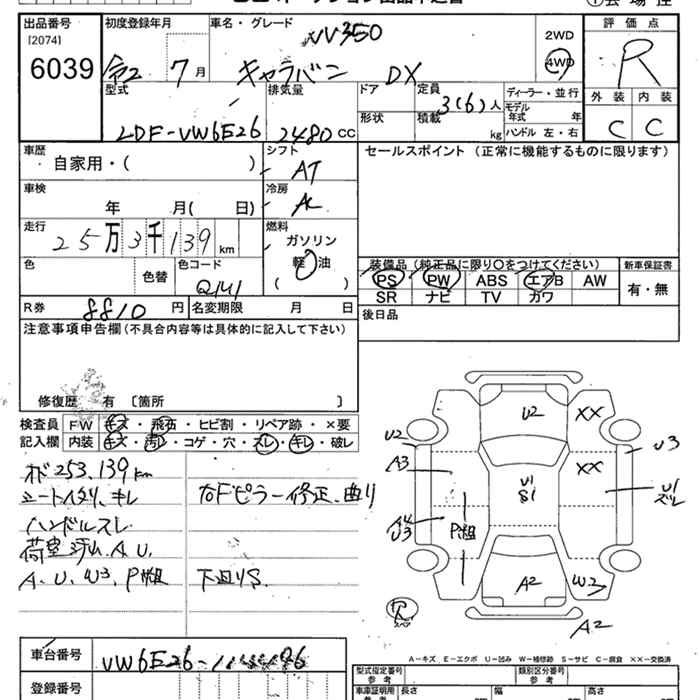 出品番号
[2074]
6039
初度登録年月
令2 7月
車名・グレード
NV350
キャラバン DX
2WD
4WD
評価点
R
外装 内装
C C
型式
LDF-VW6E26
排気量
2480 CC
ドア
形状
定員
3(6)人
積載 kg
ディーラー・並行
モデル年式 年
ハンドル 左・右
車歴
自家用・( )
シフト
AT
セールスポイント (正常に機能するものに限ります)
車検
年 月( 日)
冷房
AC
走行
25万3千139km
燃料
ガソリン
軽油
( )
色
色替
色コード
QM1
装備品 (純正品に限り○をつけてください)
PS PW ABS エアB AW
SR ナビ TV カワ
新車保証書
有・無
R券
8810円
名変期限 月 日
後日品
注意事項申告欄 (不具合内容等は具体的に記入して下さい)
修復歴 有 [箇所 ]
検査員記入欄
FW キズ・飛石・ヒビ割・リペア跡・×要
内装 キズ・汚レ・コゲ・穴・スレ・キレ・破レ
オド253,139km
シートヘタリ、キレ
ハンドルスレ
荷室汚レ、A、U
A、U、W3、P補
右Fピラー修正、曲リ
下回りS
U2
XX
U2
A3
XX
U3
U1
S1
U1
スレ
A4
U3
P補
A2
W3
A2
スペア
A-キズ E-エクボ U-凹み W-補修跡 S-サビ C-腐食 XX-交換済
車台番号
VW6E26-
登録番号
型式指定番号
参考
類別区分番号
参考
長さ 幅 高さ